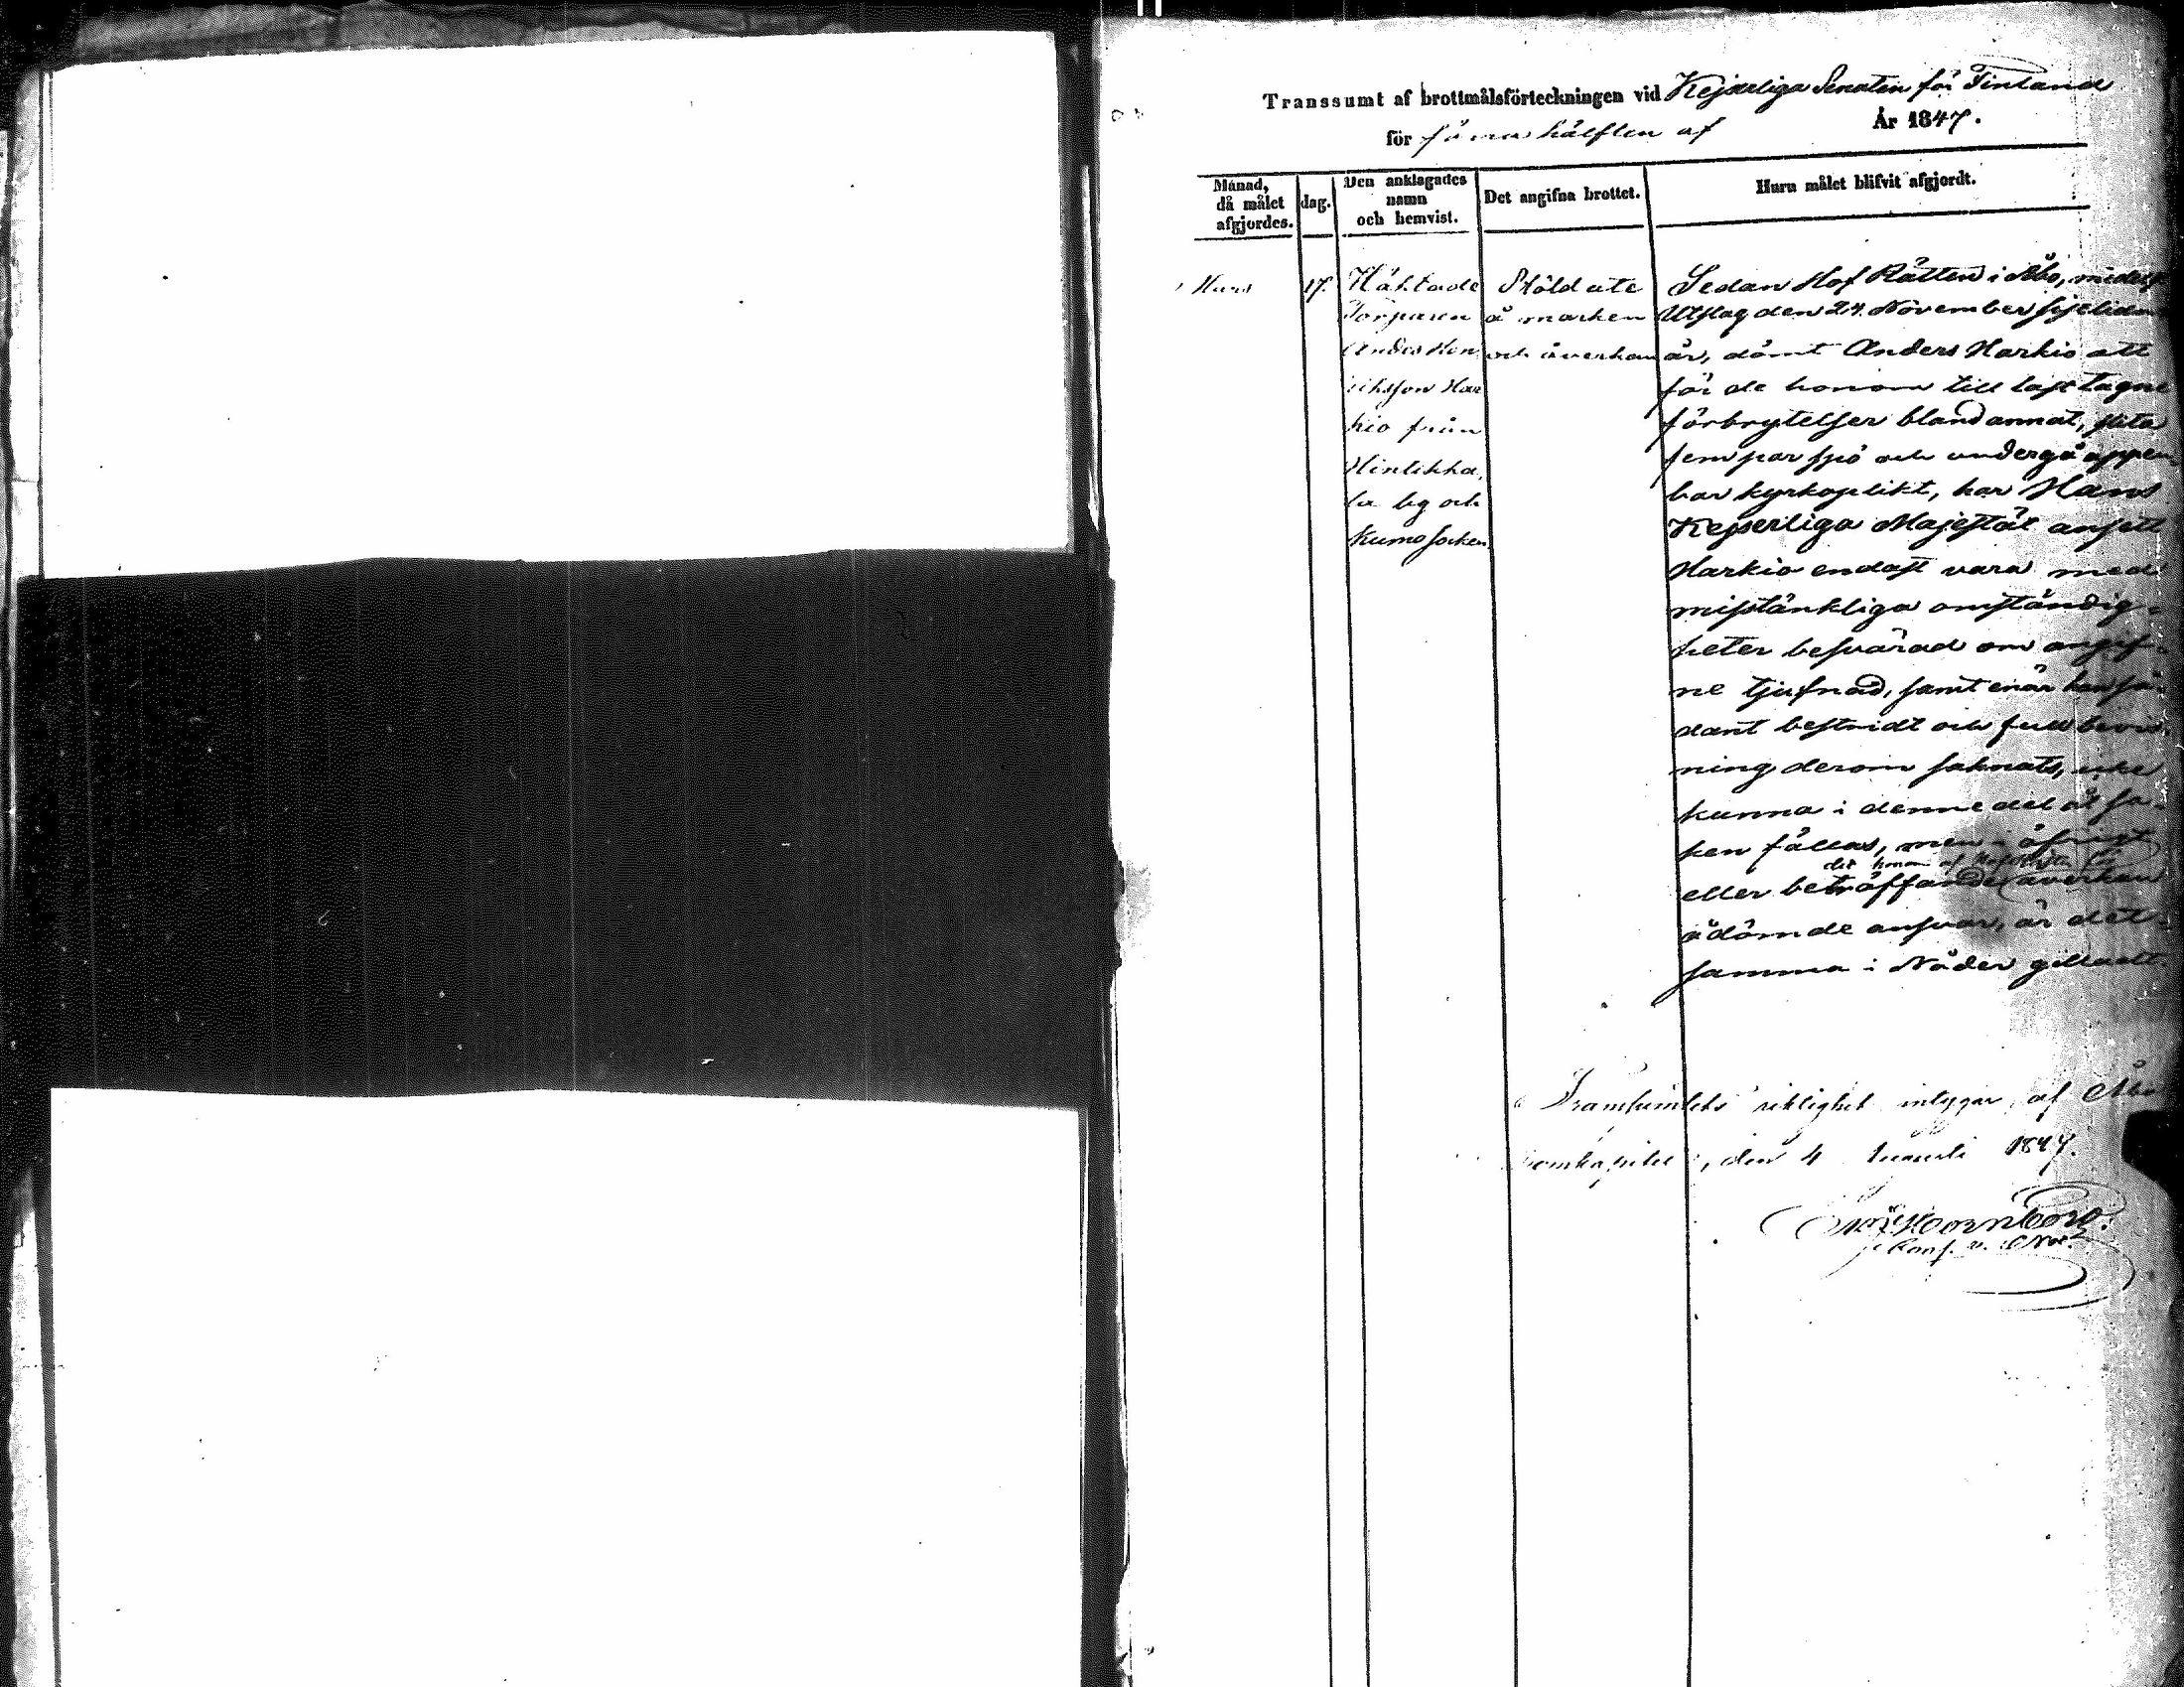 Transsumt af brottmålsförteckningen vid Kejserliga Senaten för Finland
för förra hälften af År 1847.
Månad, då målet afgjordes.
dag.
Den anklagades namn och hemvist.
Det angifna brottet.
Huru målet blifvit afgjordt.
Mars
17.
Häktade
Torparen
Anders Hen
riksson Har
kio från
Hintikka,
la by och
Kumo socken
Stöld ute
å marken
och åverkan
Sedan Hof Rätten i Åbo, medelst
Utslag den 24. November sistlidne
år, dömt Anders Harkio att
för de honom till last lagne
förbrytelser bland annat, slita
fem par spö och undergå uppen-
bar kyrkoplikt, har Hans
Kejserliga Majestät ansett
Harkio endast vara med
misstänkliga omständig-
heter besvärad om angif-
ne tjufnad, samt enär han så-
dant bestridt och full bevis-
ning derom saknats, icke
kunna i denne del åt sa-
ken fällas, men i öfrigt
det honom af HofRätten för
eller beträffande åverkan
ådömde ansvar, är det
samma i Nåder gilladt
Transsumtets riktighet intygar, af Åbo
Domkapitel, den 4 1847.